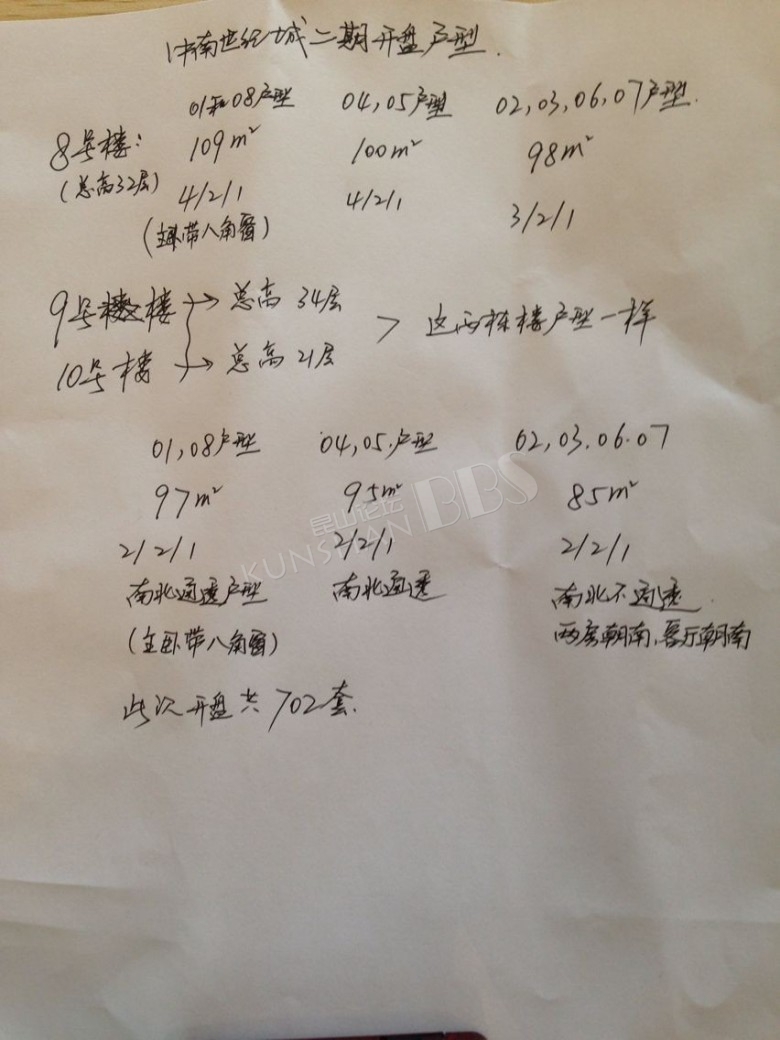 中南世纪城二期开盘户型.
01和08户型 04,05户型 02,03,06,07户型.
8号楼: 109m² 100m² 98m²
(总高32层)
4/2/1 4/2/1 3/2/1
(主卧带八角窗)
9号楼 → 总高34层
10号楼 → 总高21层 > 这两栋楼户型一样
01,08户型 04,05.户型 02,03.06.07
97m² 95m² 85m²
2/2/1 2/2/1 2/2/1
南北通透户型 南北通透 南北不通透.
(主卧带八角窗) 两房朝南,客厅朝南
此次开盘共702套.
昆山论坛
KUNSHAN BBS